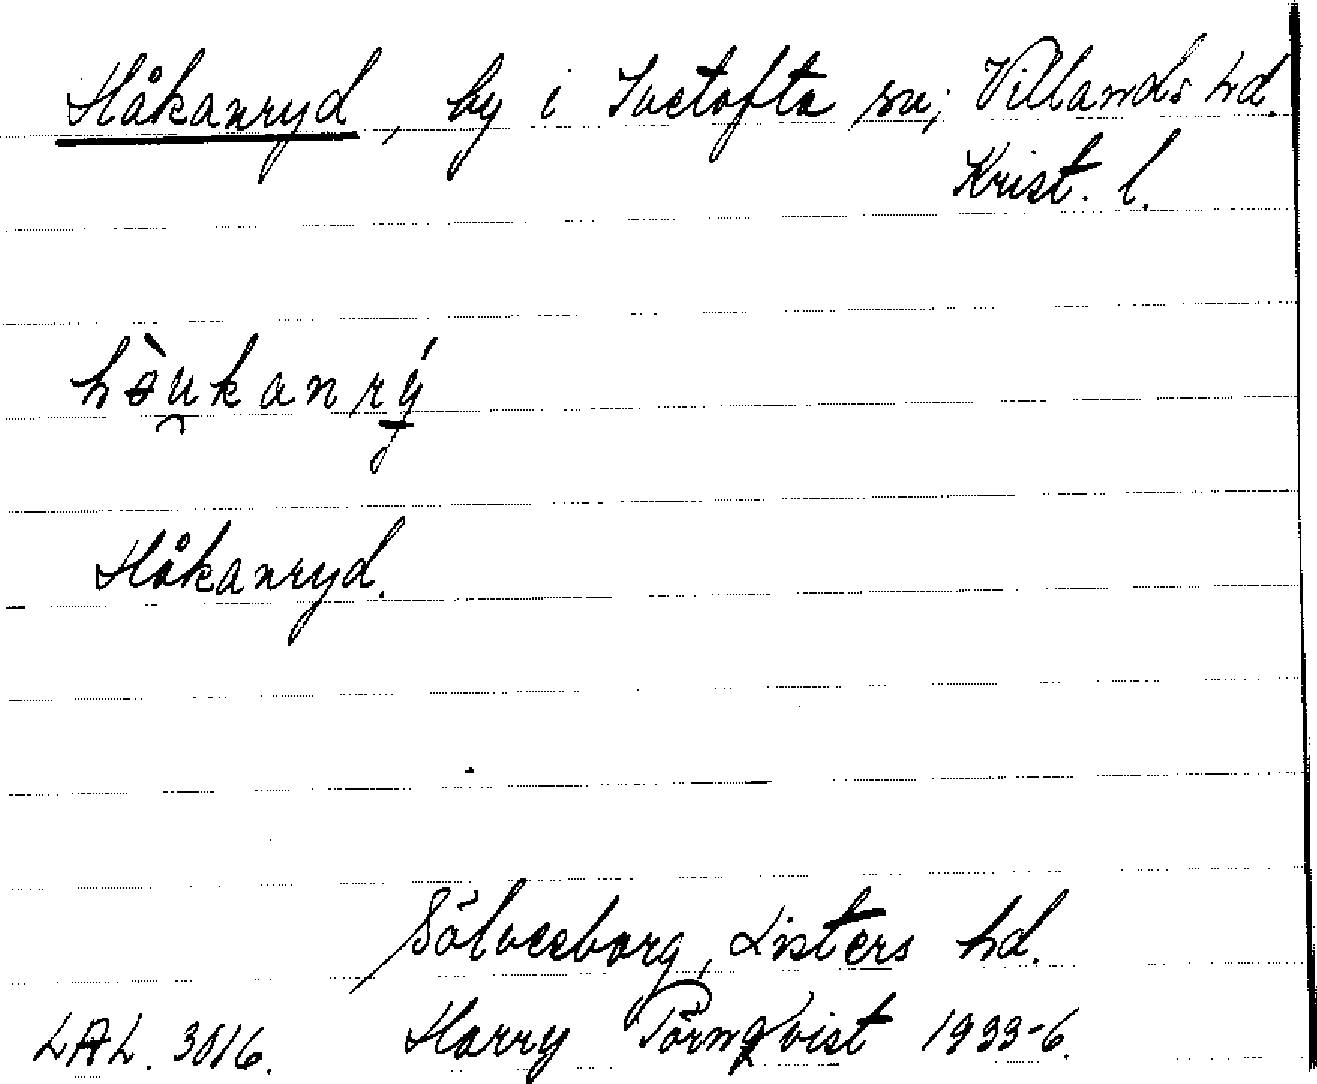 Håkanryd, by i Ivetofta sn; Villands hd.
Krist. l.
hə̀u̯kanrý̱
Håkanryd.
Sölvesborg, Listers hd.
LAL. 3016. Harry Törnqvist 1933-6.